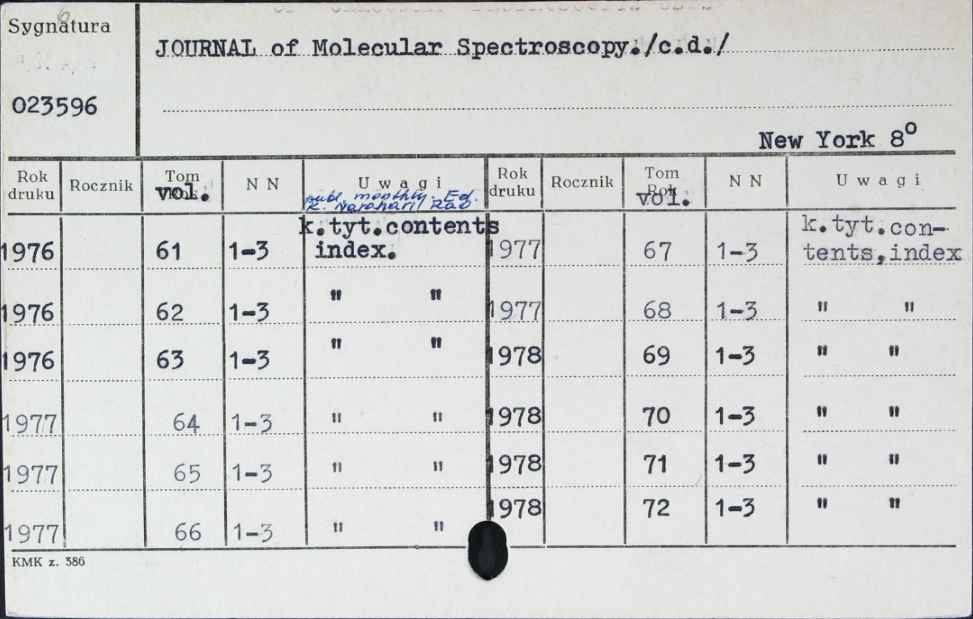 Sygnatura
JOURNAL of Molecular Spectroscopy./c.d./
023596
New York 8°
Rok druku Rocznik Tom vol. N N Uwagi Rok druku Rocznik Tom Rok vol. N N Uwagi
publ. monthly. Ed.
K. Narahari Rao
1976 61 1-3 k.tyt.contents index. 1977 67 1-3 k.tyt.con-
tents,index
1976 62 1-3 " " 1977 68 1-3 " "
1976 63 1-3 " " 1978 69 1-3 " "
1977 64 1-3 " " 1978 70 1-3 " "
1977 65 1-3 " " 1978 71 1-3 " "
1977 66 1-3 " " 1978 72 1-3 " "
KMK z. 386